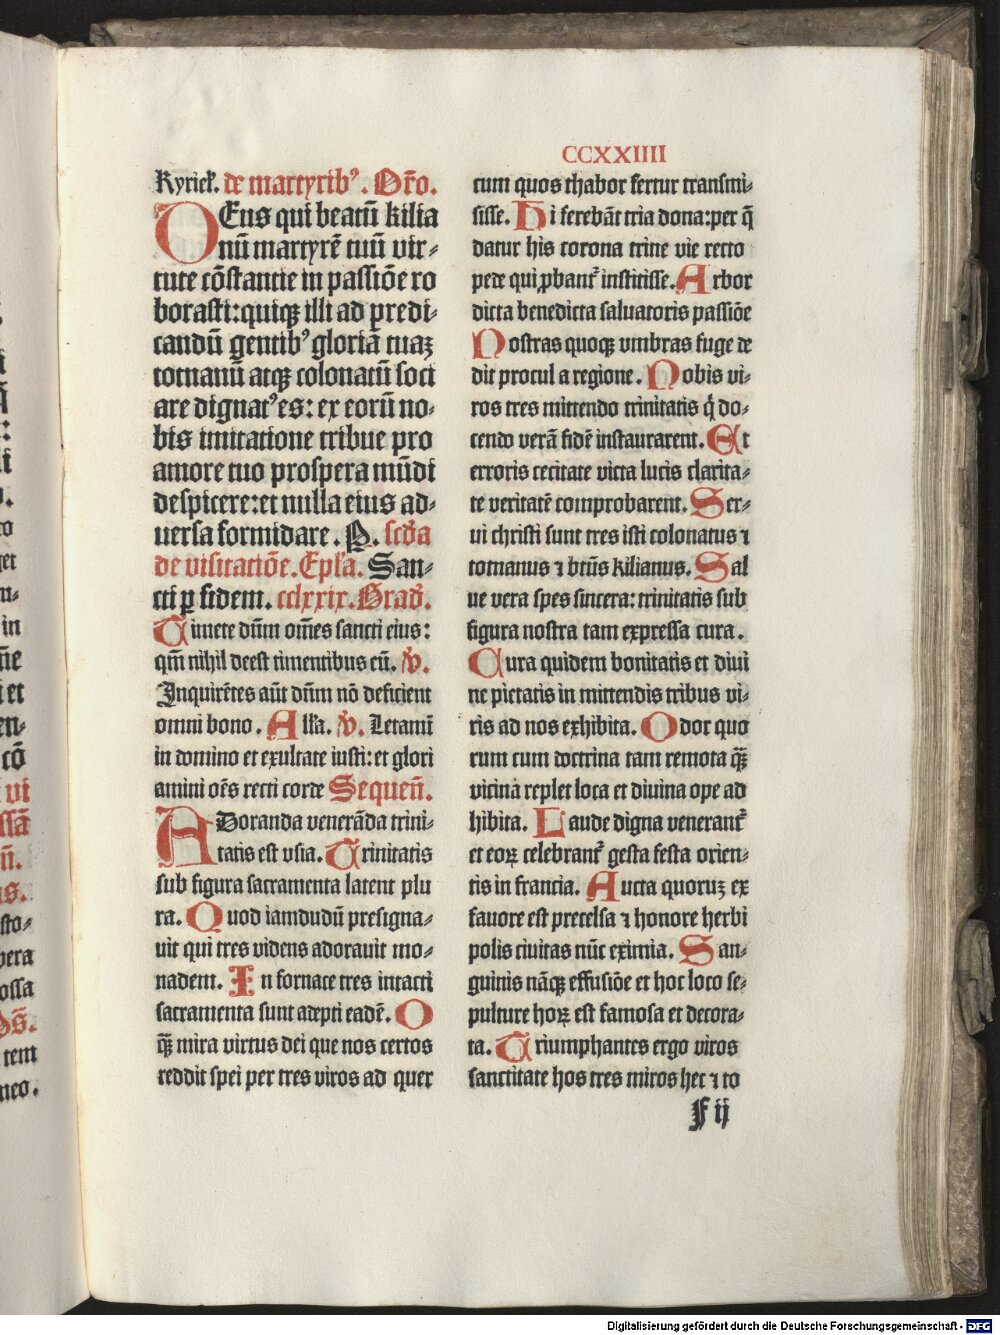 CCXXIIII
Kyriel̄. de martyribꝰ. Or̄o.
DEus qui beatū kilia
nū martyrē tuū vir-
tute cōstantie in passiōe ro
borasti: quiqꝫ illi ad p̱redi-
candū gentibꝰ gloriā tuaꝫ
totnanū atqꝫ colonatū soci
are dignatꝰes: ex eorū no-
bis imitatione tribue pro
amore tuo prospera mūdi
despicere: et nulla eius ad-
uersa formidare. P. scd̄a
de visitatiōe. Epl̄a. San-
cti ꝑ fidem. cclxxix. Grad̄.
Timete dūm om̄es sancti eius:
qm̄ nihil deest timentibus eū. v̄.
Inquirētes aūt dūm nō deficient
omni bono. All̄a. v̄. Letamī
in domino et exultate iusti: et glori
amini oēs recti corde Sequen̄.
ADoranda venerāda trini-
tatis est vsia. Trinitatis
sub figura sacramenta latent plu
ra. Quod iamdudū presigna-
uit qui tres videns adorauit mo-
nadem. In fornace tres intacti
sacramenta sunt adepti eadē. O
qꝫ̄ mira virtus dei que nos certos
reddit spei per tres viros ad quer
cum quos thabor fertur transmi-
sisse. Hi ferebāt tria dona: per q̄
datur his corona trine vie recto
pede qui ꝓbant̄ institisse. Arbor
dicta benedicta saluatoris passiōe
Nostras quoqꝫ vmbras fuge de
dit procul a regione. Nobis vi-
ros tres mittendo trinitatis q̇ do-
cendo verā fidē instaurarent. Et
erroris cecitate victa lucis clarita-
te veritatē comprobarent. Ser-
ui christi sunt tres isti colonatus ⁊
totnanus ⁊ btūs kilianus. Sal
ue vera spes sincera: trinitatis sub
figura nostra tam expressa cura.
Cura quidem bonitatis et diui
ne pietatis in mittendis tribus vi-
ris ad nos exhibita. Odor quo
rum cum doctrina tam remota qꝫ̄
vicina replet loca et diuina ope ad
hibita. Laude digna venerant̄
et eoꝝ celebrant̄ gesta festa orien-
tis in francia. Aucta quoruꝫ ex
fauore est precelsa ⁊ honore herbi
polis ciuitas nūc eximia. San-
guinis nāqꝫ effusiōe et hoc loco se-
pulture hoꝝ est famosa et decora-
ta. Triumphantes ergo viros
sanctitate hos tres miros hec ⁊ to
F ij
Digitalisierung gefördert durch die Deutsche Forschungsgemeinschaft - DFG